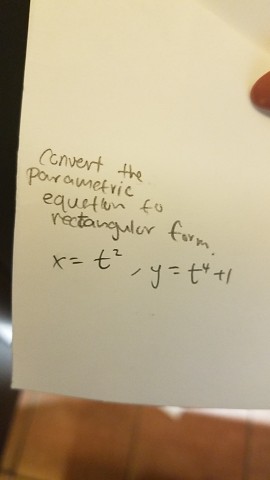 Convert the
parametric
equation to
rectangular form.
x = t² , y = t⁴ + 1